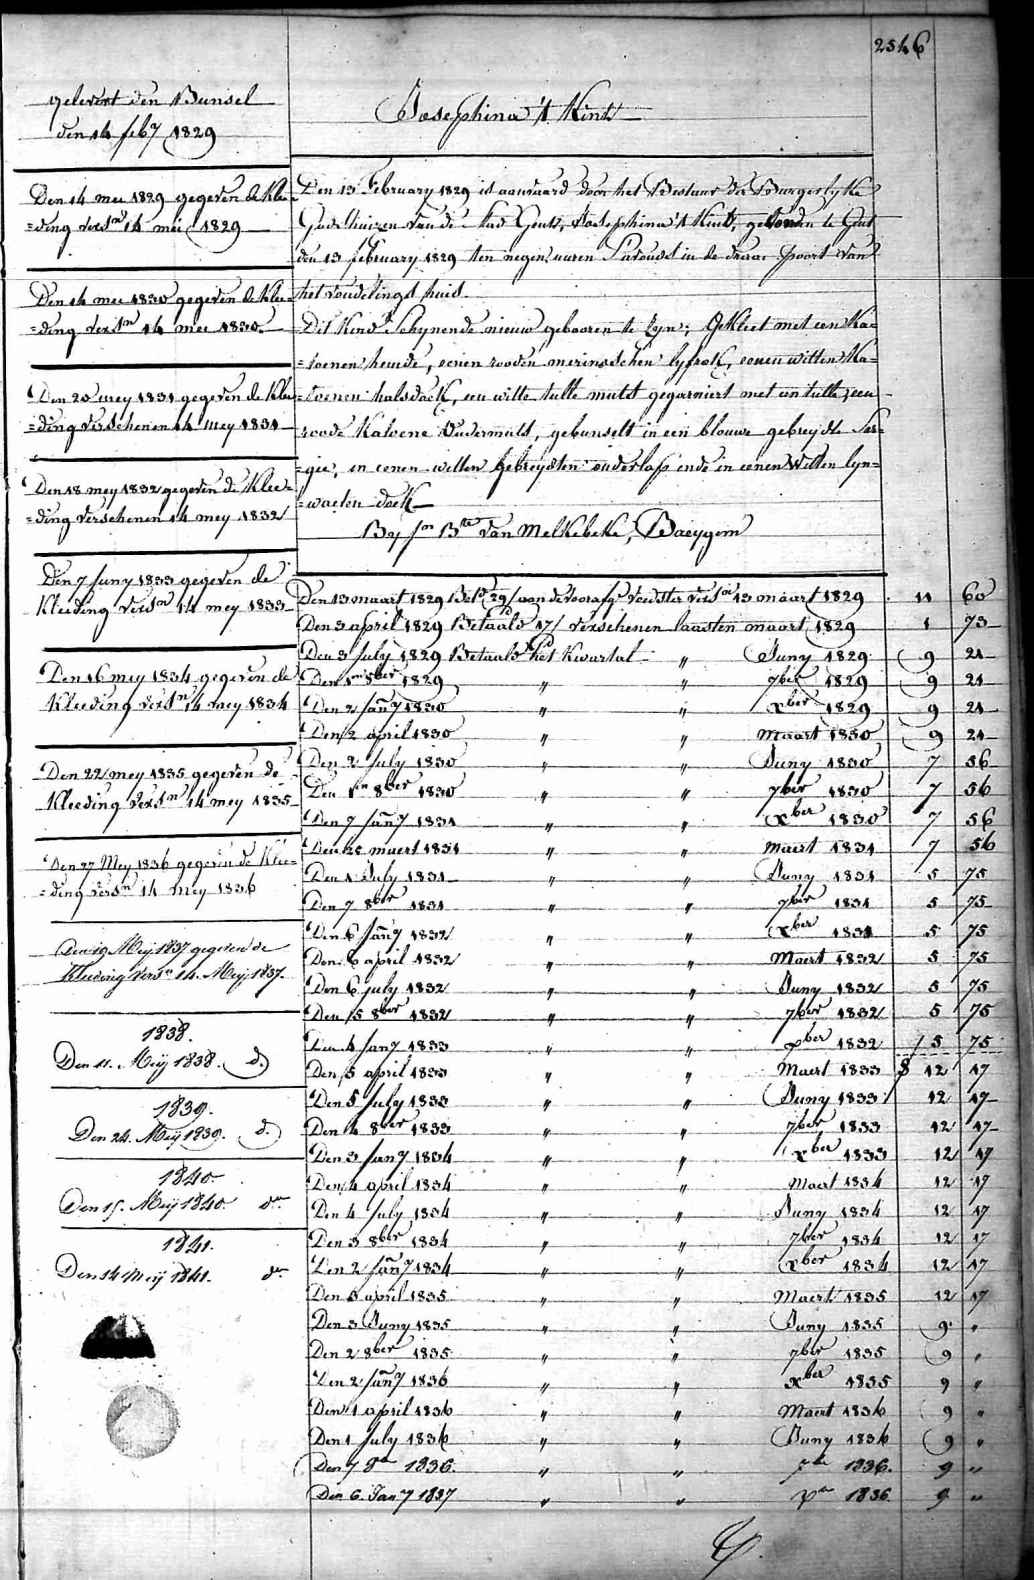 2546
gelevert den Bunsel
den 14 feb.y 1829
Josephina 't Kint
Den 14 mei 1829 gegeven de Klee=
=ding vers.en 14 mei 1829
Den 14 mei 1830 gegeven de Klee=
=ding vers.en 14 mei 1830
Den 20 mey 1831 gegeven de Klee
=ding verschenen 14 mey 1831
Den 18 mey 1832 gegeven de Klee=
=ding verschenen 14 mey 1832
Den 7 Juny 1833 gegeven de
Kleeding vers.en 14 mey 1833
Den 16 mey 1834 gegeven de
Kleeding vers.n 14 mey 1834
Den 22 mey 1835 gegeven de
Kleeding vers.n 14 mey 1835
Den 27 Mey 1836 gegeven de Klee=
=ding vers.n 14 mey 1836
Den 19 Meij 1837 gegeven de
Kleeding vers.n 14. Meij 1837.
1838.
Den 11. Meij 1838. d.)
1839.
Den 24. Meij 1839. d.)
1840
Den 15. Meij 1840. d.o
1841.
Den 14 Meij 1841. d.o
Den 13 February 1829 is aanvaard door het Bestuur der Burgerlyke
Godshuizen van de Stad Gent, Josephina 't Kint, gevonden te Gent
den 13 february 1829 ten negen uuren S'avonds in de draai poort van
het vondelings huis.
Dit Kind Schynende nieuw gebooren te Zyn; Gekleet met een Ka=
=toenen hemde, eenen rooden merinoschen lyfrok, eenen witten Ka=
=toenen halsdoek, een witte tulle muts gegarniert met een tulle, een
roode Katoene Ondermuts, gebunselt in een blouwe gebreyde Ser=
=gie, en eenen witten gebreyden onderlap ende in eenen Witten lyn=
=waeten doek
By J.n B.te Van Melkebeke, Baeygem
Den 13 maart 1829 Bet.d 29/ van de voorafg.e voedster vers.en 13 maart 1829 11 60
Den 3 april 1829 Betaald 17/ verschenen laasten maart 1829 1 73
Den 3 July 1829 Betaald het Kwartal " Juny 1829 9 21
Den 1.en 8ber 1829 " " 7ber 1829 9 21
Den 2 Jan.y 1830 " " Xber 1829 9 21
Den 2 april 1830 " " Maart 1830 9 21
Den 2 July 1830 " " Juny 1830 7 56
Den 1.en 8ber 1830 " " 7ber 1830 7 56
Den 7 Jan.y 1831 " " Xber 1830 7 56
Den 28 maert 1831 " " Maert 1831 7 56
Den 1 July 1831 " " Juny 1831 5 75
Den 7 8ber 1831 " " 7ber 1831 5 75
Den 6 Jan.y 1832 " " Xber 1831 5 75
Den 6 april 1832 " " Maert 1832 5 75
Den 6 july 1832 " " Juny 1832 5 75
Den 5 8ber 1832 " " 7ber 1832 5 75
Den 4 Jan.y 1833 " " Xber 1832 5 75
Den 5 april 1833 " " Maert 1833 12 17
Den 5 July 1833 " " Juny 1833 12 17
Den 4 8ber 1833 " " 7ber 1833 12 17
Den 3 Jan.y 1834 " " Xber 1833 12 17
Den 4 april 1834 " " Maert 1834 12 17
Den 4 July 1834 " " Juny 1834 12 17
Den 3 8ber 1834 " " 7ber 1834 12 17
Den 2 Jan.y 1834 " " Xber 1834 12 17
Den 3 april 1835 " " Maert 1835 12 17
Den 3 Juny 1835 " " Juny 1835 9 "
Den 2 8ber 1835 " " 7ber 1835 9 "
Den 2 Jan.y 1836 " " Xber 1835 9 "
Den 1 april 1836 " " Maert 1836 9 "
Den 1 July 1836 " " Juny 1836 9 "
Den 7 8.er 1836. " " 7.er 1836. 9 "
Den 6 Jan.y 1837 " " X.er 1836 9 "